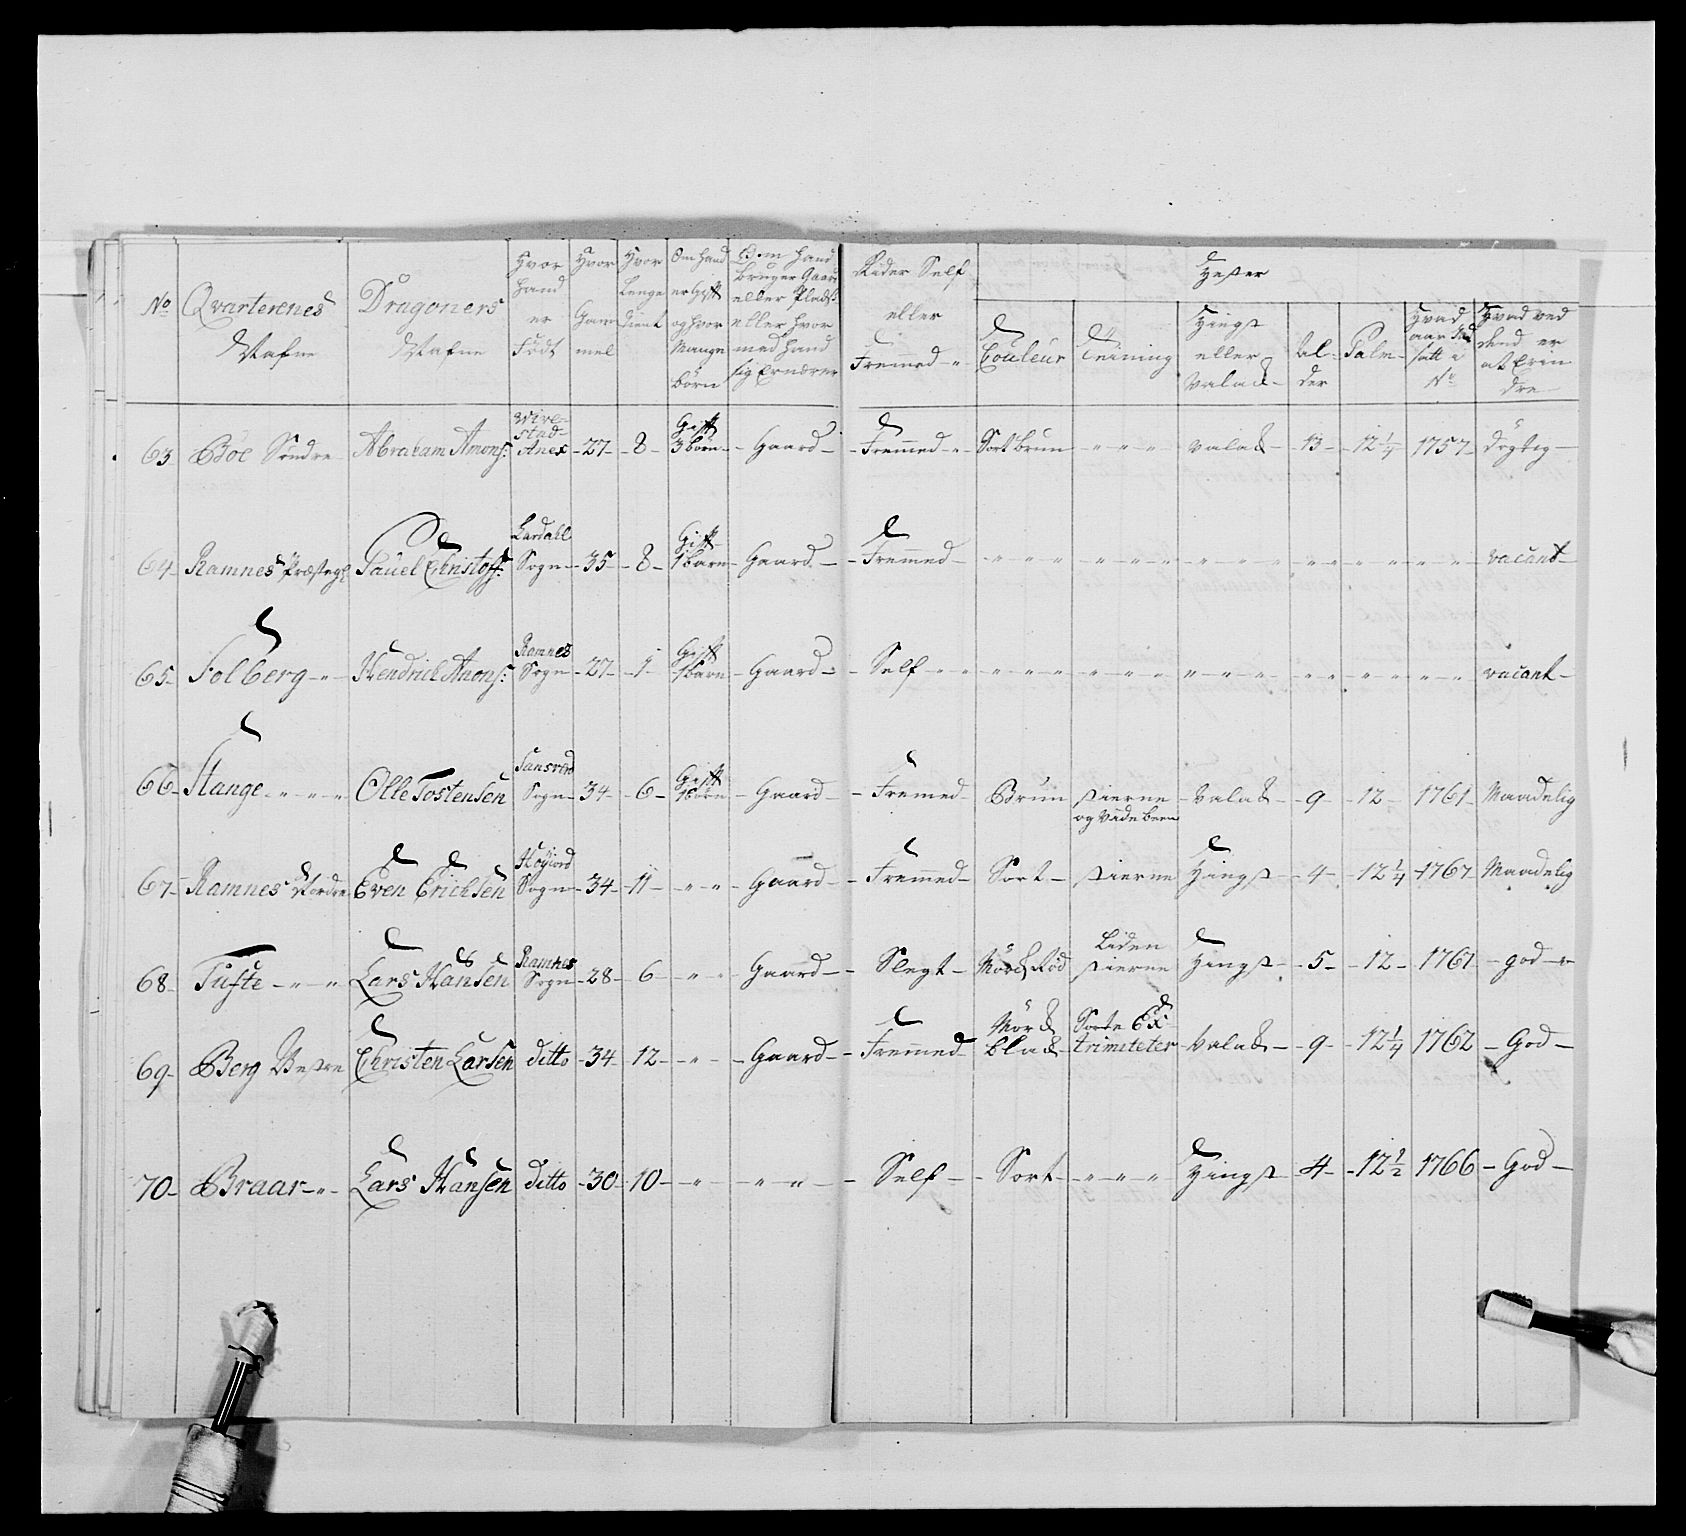 No Qvarterenes Nafne | Dragoners Nafne | Hvor hand er Födt | Hvor Gammel | Hvor Lenge Tient | Om hand er Gift og hvor Mange börn | Om hand bruger Gaard eller Plads eller hvor med hand sig Ernærer | Rider Self eller Fremmed | Hester
Couleur | Teining | Hingst eller Valak | Alder | Palm | Hvad aar satt i No | Hvad ved dend er at Erindre
63 Böe Söndre | Abraham Amons: | Anex | 27 | 8 | Gift 3 börn | Gaard | Fremmed | Sort brun | " " " | Valak | 13 | 12 1/4 | 1757 | dögtig
64 Ramnes Præstegl | Pauel Christoff: | Lardahl Sogn | 35 | 8 | Gift 1 barn | Gaard | Fremmed | vacant
65 Folberg | Hendrich Amons: | Ramnes Sogn | 27 | 1 | Gift 1 barn | Gaard | Self | vacant
66 Stange | Olle Tostensen | Sogn | 34 | 6 | Gift | Gaard | Fremed | Brun | stierne og Vide been | Valak | 9 | 12 | 1761 | Maadelig
67 Ramnes Nordre | Even Erichsen | Höyjord Sogn | 34 | 11 | " " | Gaard | Fremmed | Sort | stierne | Hingst | 4 | 12 1/4 | 1767 | Maadelig
68 Tufte | Lars Hansen | Ramnes Sogn | 28 | 6 | " " | Gaard | Slegt | Mörk Röd | Liden stierne | Hingst | 5 | 12 | 1761 | god
69 Berg Vestre | Christen Larsen | ditto | 34 | 12 | " | Gaard | Fremmed | Mörk blak | Sorte Extrimiteter | Valak | 9 | 12 1/4 | 1762 | God
70 Braar | Lars Hansen | ditto | 30 | 10 | " | " " | Self | Sort | " " " | Hingst | 4 | 12 1/2 | 1766 | God